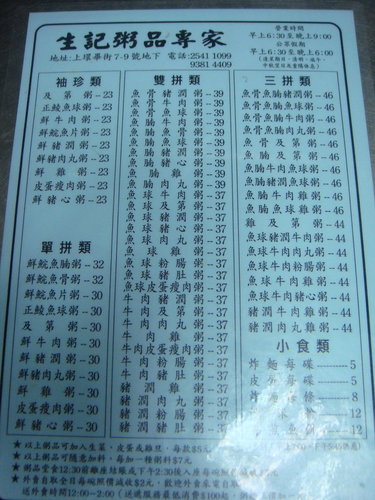 生記粥品專家
地址:上環畢街7-9號地下 電話:2541 1099
9381 4409
營業時間
早上6:30至晚上9:00
公眾假期
早上6:30至晚上6:00
袖珍類
及第粥--23
正鯪魚球粥--23
鮮牛肉粥--23
鮮魚片粥--23
鮮豬潤粥--23
鮮豬肉丸粥--23
鮮雞粥--23
皮蛋瘦肉粥--23
鮮豬心粥--23
單拼類
鮮鯇魚腩粥--32
鮮鯇魚骨粥--32
鮮鯇魚片粥--30
正鯪魚球粥--30
及第粥--30
鮮牛肉粥--30
鮮豬潤粥--30
鮮豬肉丸粥--30
鮮雞粥--30
皮蛋瘦肉粥--30
鮮豬心粥--30
雙拼類
魚骨豬潤粥--39
魚骨魚球粥--39
魚骨牛肉粥--39
魚腩魚骨粥--39
魚腩魚球粥--39
魚腩牛肉粥--39
魚腩豬潤粥--39
魚腩豬心粥--39
魚腩雞粥--39
魚腩肉丸粥--39
魚球牛肉粥--37
魚球及第粥--37
魚球豬潤粥--37
魚球豬心粥--37
魚球肉丸粥--37
魚球雞粥--37
魚球粉腸粥--37
魚球豬肚粥--37
牛肉豬潤粥--37
牛肉及第粥--37
牛肉肉丸粥--37
牛肉雞粥--37
牛肉皮蛋瘦肉粥--37
牛肉粉腸粥--37
牛肉豬肚粥--37
豬潤雞粥--37
豬潤肉丸粥--37
豬潤粉腸粥--37
三拼類
魚骨魚腩豬潤粥--46
魚骨魚腩魚球粥--46
魚骨魚腩牛肉粥--46
魚骨及第粥--46
魚腩及第粥--46
魚腩牛肉魚球粥--46
魚腩魚球豬潤粥--46
魚腩牛肉豬潤粥--46
魚腩牛肉雞粥--46
魚腩魚球雞粥--46
魚球牛肉豬潤粥--44
魚球牛肉肉丸粥--44
魚球牛肉雞粥--44
魚球牛肉豬心粥--44
魚球及第粥--44
牛肉豬潤肉丸粥--44
牛肉豬潤雞粥--44
小食類
炸麵每碟--5
皮蛋每碟--5
5
12
12
★以上粥品可加入生菜、皮蛋或雞旦,每款$5元
★以上粥品可隨意加料,每加一種粥料$7元